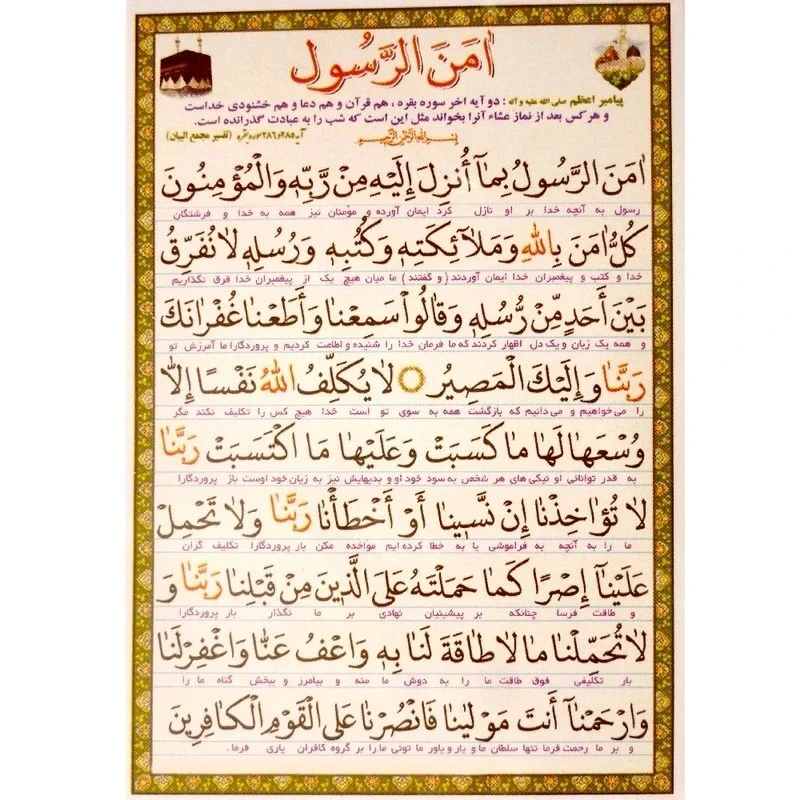 اٰمَنَ الرَّسُول
پیامبر اعظم صلی الله علیه و آله : دو آیه اخر سوره بقره ، هم قرآن و هم دعا و هم خشنودی خداست
و هر کس بعد از نماز عشاء آنرا بخواند مثل این است که شب را به عبادت گذرانده است.
بِسْمِ اللهِ الرَّحْمٰنِ الرَّحیمِ
آیه ۲۸۵ و ۲۸۶ سوره بقره (تفسیر مجمع البیان)
اٰمَنَ الرَّسُولُ بِمٰآ أُنزِلَ إِلَيْهِ مِنْ رَّبِّهٖ وَالْمُؤْمِنُونَ
رسول به آنچه خدا بر او نازل کرد ایمان آورده و مؤمنان نیز همه به خدا و فرشتگان
كُلٌّ اٰمَنَ بِاللّٰهِ وَ مَلٰآئِكَتِهٖ وَ كُتُبِهٖ وَ رُسُلِهٖ لٰا نُفَرِّقُ
خدا و کتب و پیغمبران خدا ایمان آوردند ( و گفتند ) ما میان هیچ یک از پیغمبران خدا فرق نگذاریم
بَيْنَ أَحَدٍ مِّنْ رُّسُلِهٖ وَ قٰالُواْ سَمِعْنٰا وَ أَطَعْنٰا غُفْرٰانَكَ
و همه یک زبان و یک دل اظهار کردند که ما فرمان خدا را شنیده و اطاعت کردیم و پروردگارا ما آمرزش تو
رَبَّنٰا وَ إِلَيْكَ الْمَصِيرُ لٰا يُكَلِّفُ اللّٰهُ نَفْسًا إِلّٰا
را می خواهیم و می دانیم که بازگشت همه به سوی تو است خدا هیچ کس را تکلیف نکند مگر
وُسْعَهٰا لَهٰا مٰا كَسَبَتْ وَ عَلَيْهٰا مَا اكْتَسَبَتْ رَبَّنٰا
به قدر توانائی او نیکی های هر شخص به سود خود او و بدیهایش نیز به زیان خود اوست باز پروردگارا
لٰا تُؤٰاخِذْنٰا إِنْ نَّسِينٰا أَوْ أَخْطَأْنٰا رَبَّنٰا وَ لٰا تَحْمِلْ
ما را به آنچه به فراموشی یا به خطا کرده ایم مواخذه مکن بار پروردگارا تکلیف گران
عَلَيْنٰآ إِصْرًا كَمٰا حَمَلْتَهُ عَلَى الَّذِينَ مِنْ قَبْلِنٰا رَبَّنٰا وَ
و طاقت فرسا چنانکه بر پیشینیان نهادی بر ما نگذار بار پروردگارا
لٰا تُحَمِّلْنٰا مٰا لٰا طٰاقَةَ لَنٰا بِهٖ وَ اعْفُ عَنّٰا وَ اغْفِرْ لَنٰا
بار تکلیفی فوق طاقت ما را به دوش ما منه و بیامرز و ببخش گناه ما را
وَ ارْحَمْنٰآ أَنْتَ مَوْلٰينٰا فَانْصُرْنٰا عَلَى الْقَوْمِ الْكٰافِرِينَ
و بر ما رحمت فرما تنها سلطان ما و یار و یاور ما توئی ما را بر گروه کافران یاری فرما.